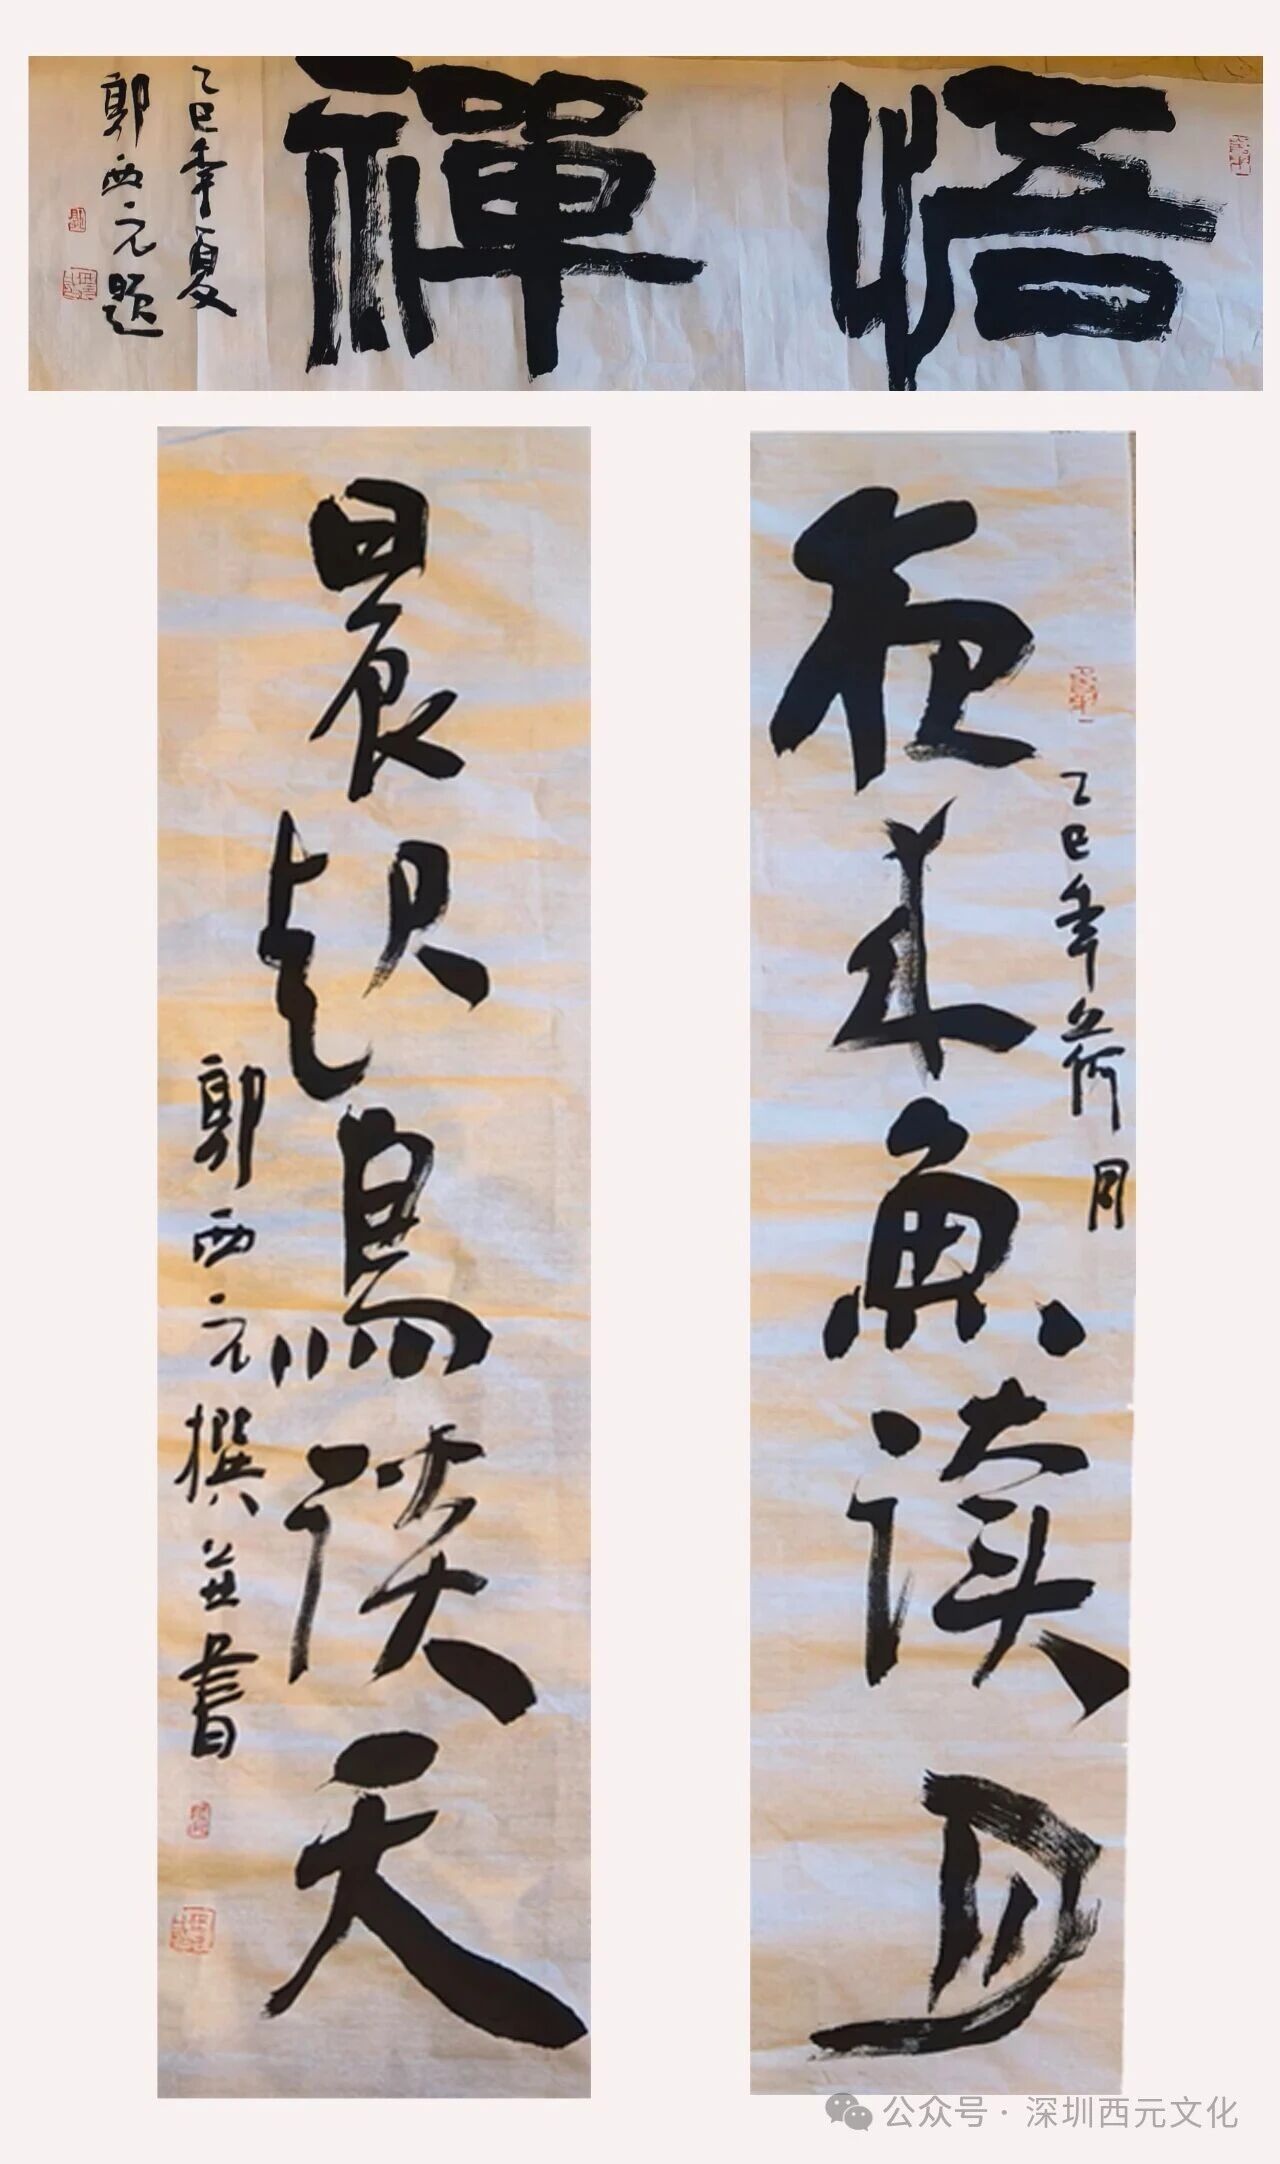 悟禪
乙巳年夏
郭西元题
夜来魚读月
乙巳年荷月
晨起鳥谈天
郭西元撰並書
公众号·深圳西元文化